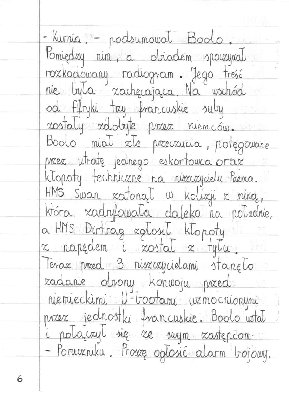 - Żurnia. - podsumował Bodo.
Pomiędzy nim, a obiadem spoczywał
rozkodowany radiogram. Jego treść
nie była zachęcająca. Na wschód
od Afryki trzy francuskie suby
zostały zdobyte przez niemców.
Bodo miał złe przeczucia, potęgowane
przez utratę jednego eskortowca oraz
kłopoty techniczne na niszczycielu
HMS Swan zatonął w kolizji z
która zadryfowała daleko na południe,
a HMS zgłosił kłopoty
z napędem i został z tyłu.
Teraz przed 3 niszczycielami stanęło
zadanie obrony konwoju przed
niemieckimi U-bootami wzmocnionymi
przez jednostki francuskie. Bodo wstał
i połączył się ze swym zastępcą.
- Poruczniku. Proszę ogłosić alarm bojowy.
6